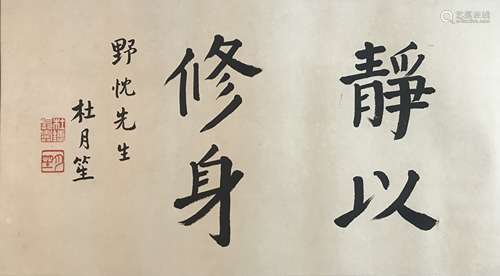 靜以
修身
野忱先生
杜月笙